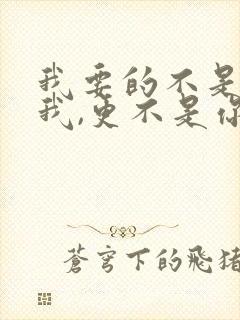 我要的不是
我,更不是你
蒼穹下的飛猪